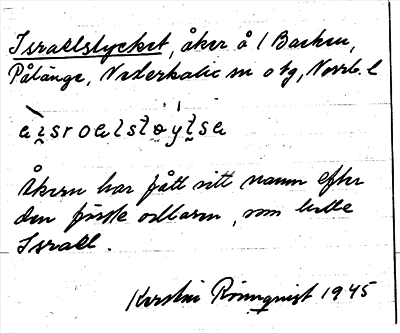 Israelstycket, åker å / Backen,
Pålänge, Nederkalix sn o tg, Norrb. l
Åkern har fått sitt namn efter
den förste odlaren, som hette
Israel.
Kerstin Rönnqvist 1945